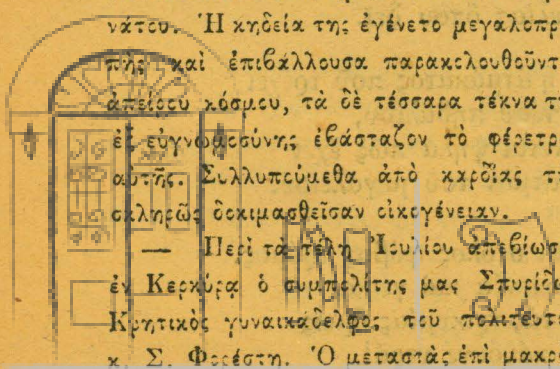 νάτου. Ἡ κηδεία της ἐγένετο μεγαλοπρ
πὴς καὶ ἐπιβάλλουσα παρακολουθοῦντ
ἀπείρου κόσμου, τὰ δὲ τέσσαρα τέκνα τη
ἐξ εὐγνωμοσύνης ἐβάσταζον τὸ φέρετρ
αὐτῆς. Συλλυπούμεθα ἀπὸ καρδίας τη
σκληρῶς δοκιμασθεῖσαν οἰκογένειαν.
— Περὶ τὰ τέλη Ἰουλίου ἀπεβίωσ
ἐν Κερκύρᾳ ὁ συμπολίτης μας Σπυρίδω
Κρητικὸς γυναικάδελφος τοῦ πολιτευτο
κ. Σ. Φορέστη. Ὁ μεταστὰς ἐπὶ μακρο